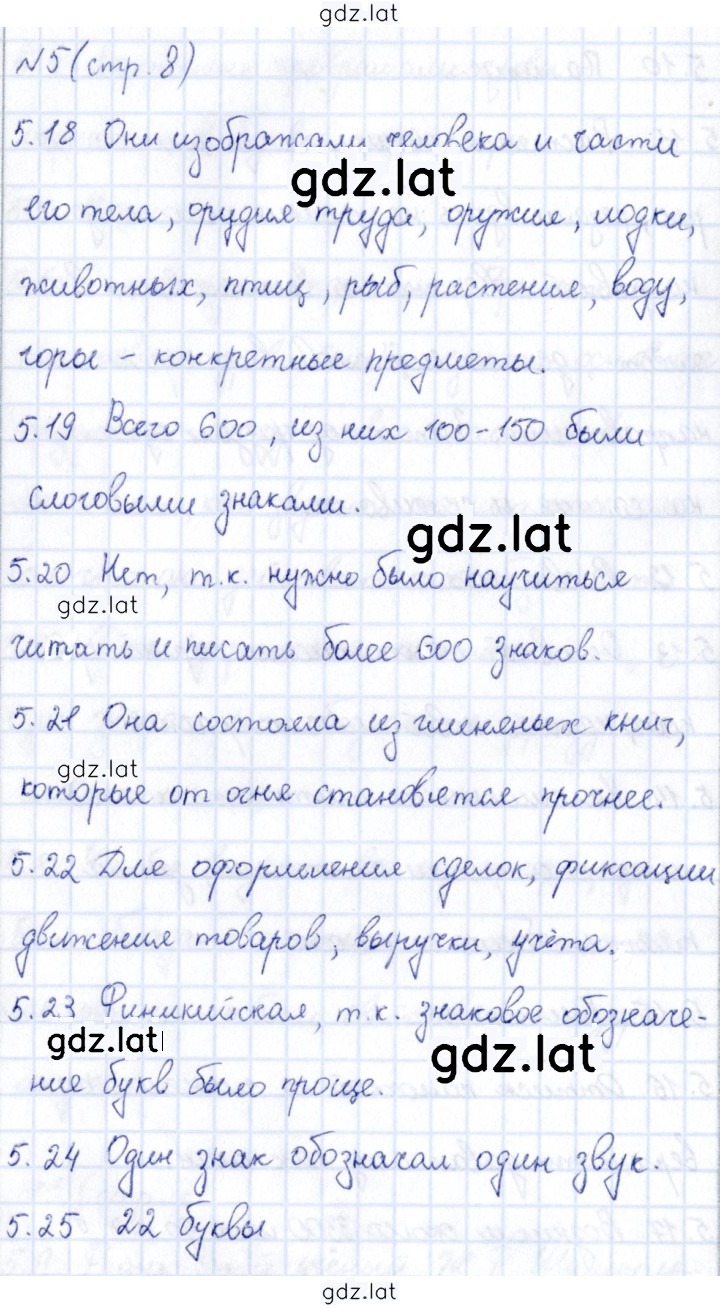 gdz.lat
№5 (стр. 8)
5.18 Они изображали человека и части
gdz.lat
его тела, орудия труда, оружия, лодки,
животных, птиц, рыб, растения, воду,
горы - конкретные предметы.
5.19 Всего 600, из них 100-150 были
слоговыми знаками.
gdz.lat
5.20 Нет, т.к. нужно было научиться
gdz.lat
читать и писать более 600 знаков.
5.21 Она состояла из глиняных книг,
gdz.lat
которые от огня становятся прочнее.
5.22 Для оформления сделок, фиксации
движения товаров, выручки, учёта.
5.23 Финикийская, т.к. знаковое обозначе-
gdz.lat
gdz.lat
ние букв было проще.
5.24 Один знак обозначал один звук.
5.25 22 буквы
gdz.lat